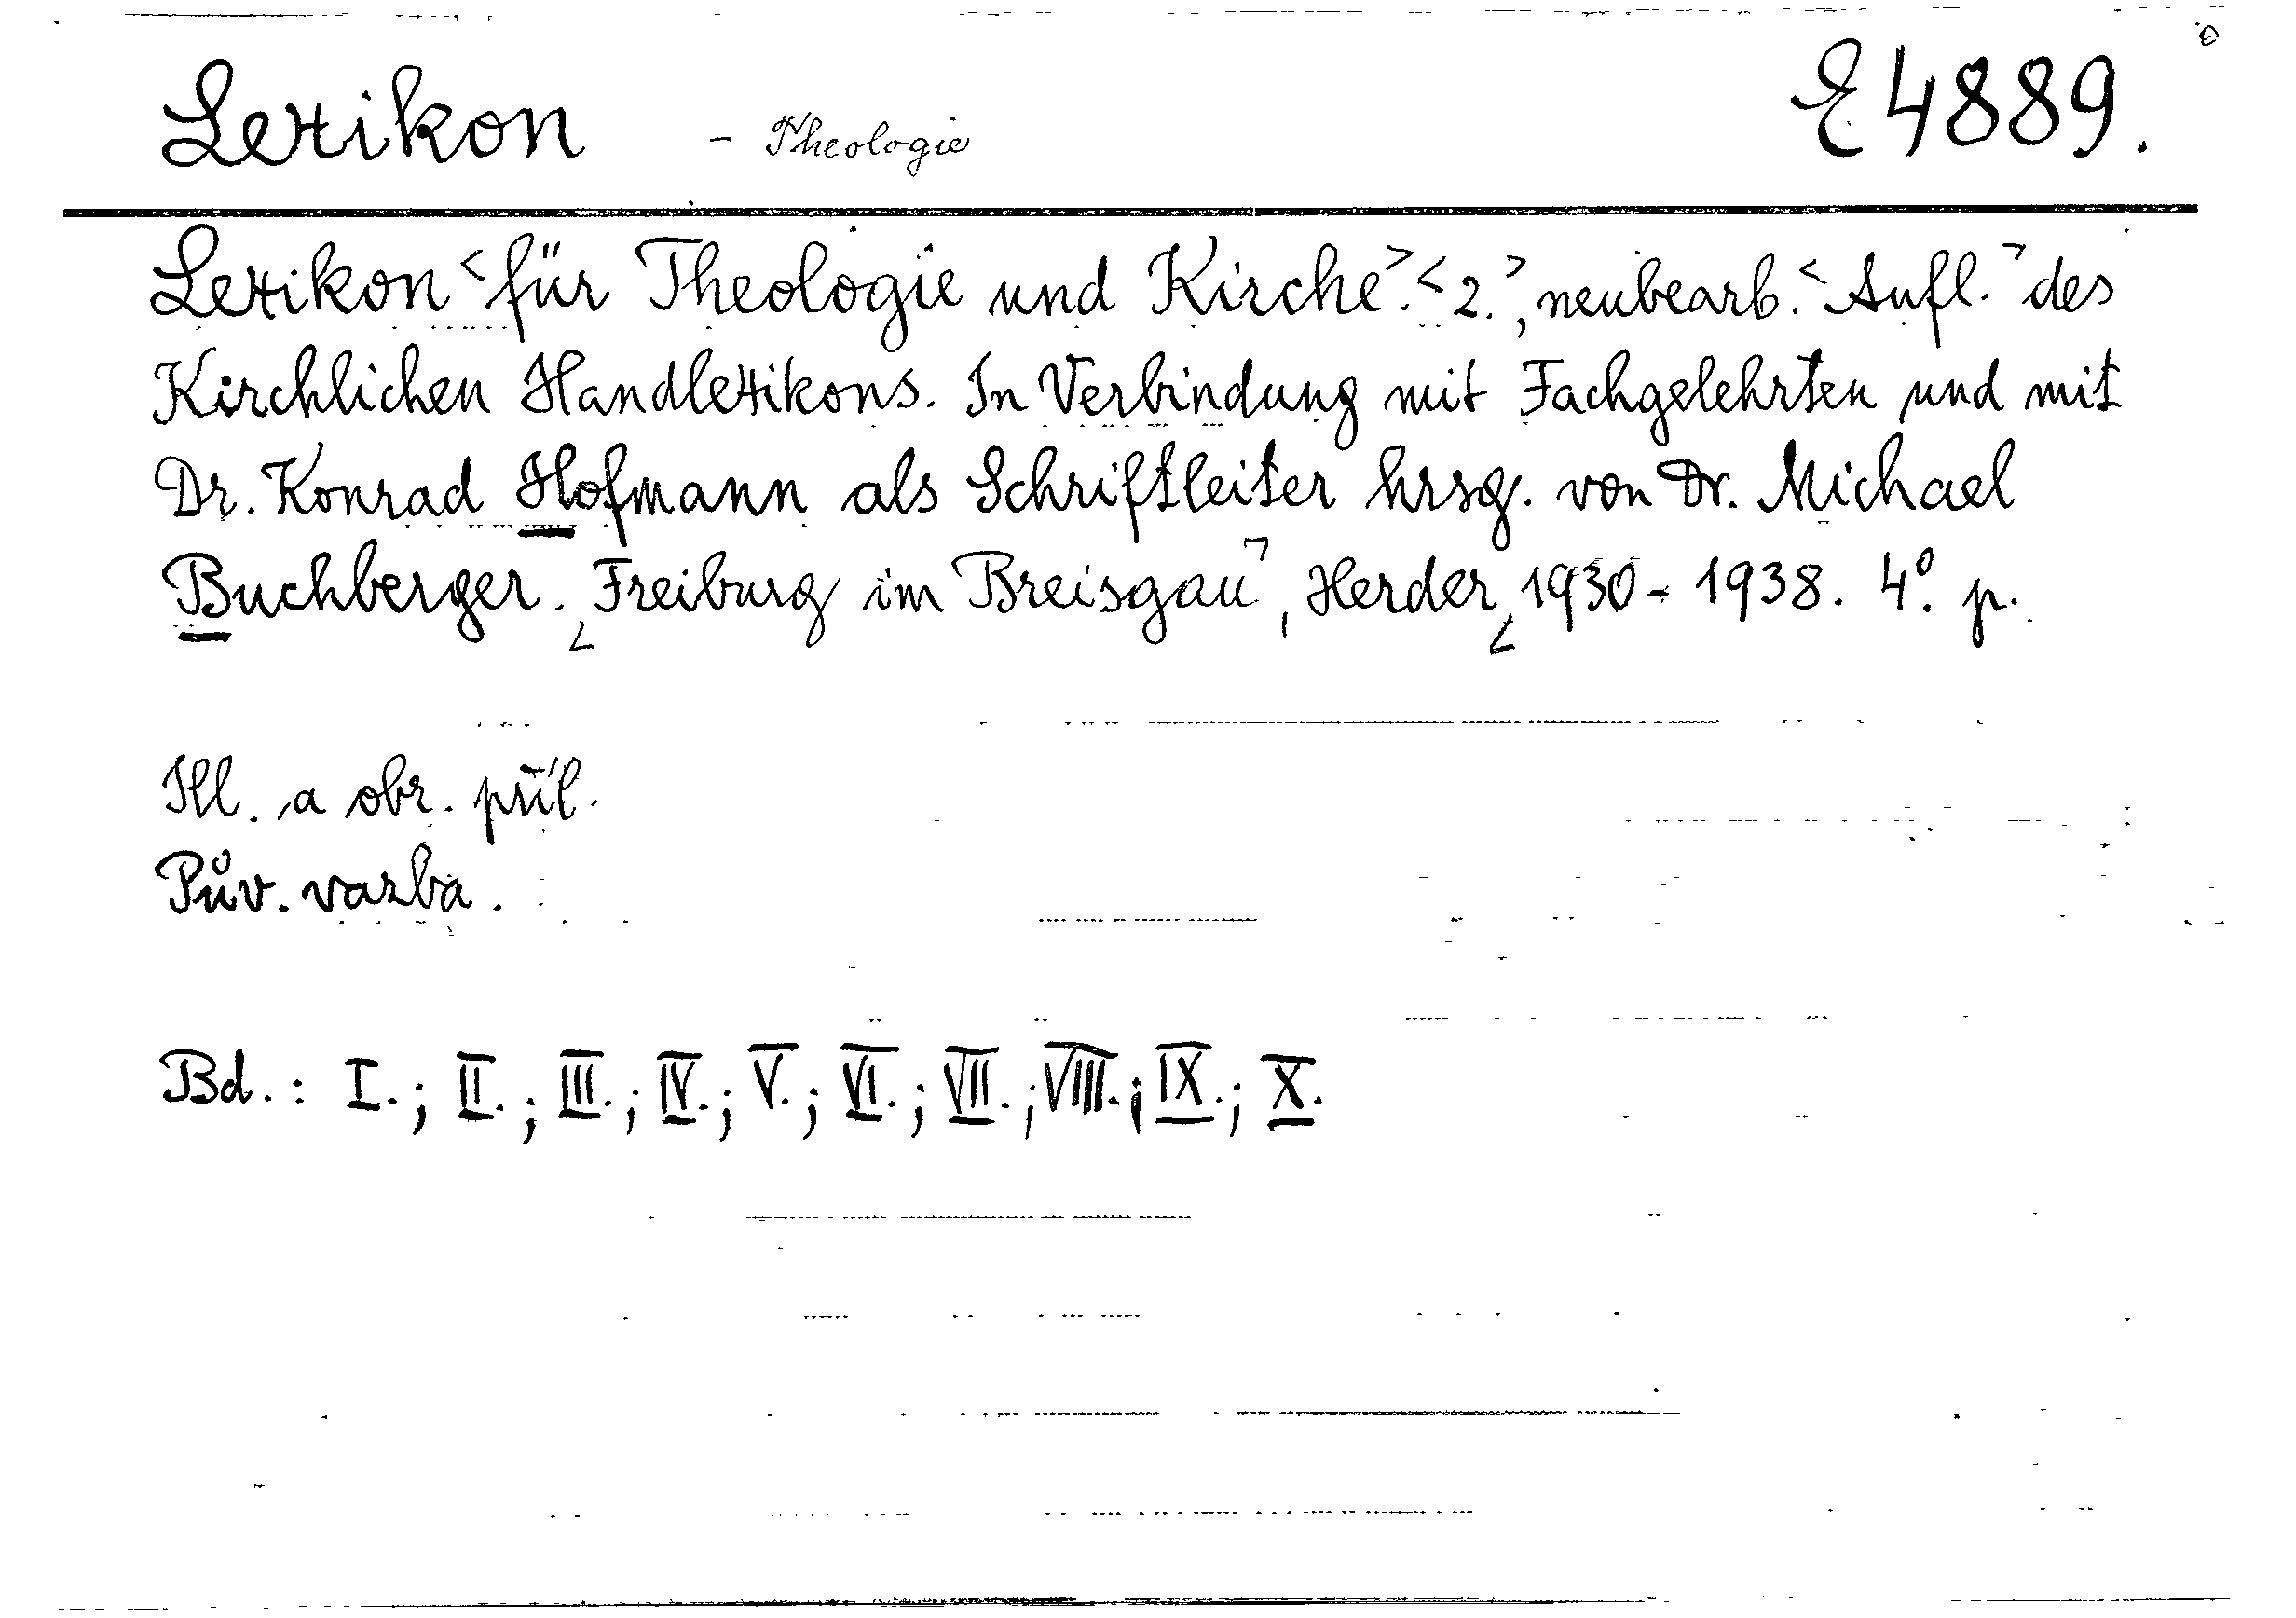 Lexikon - Theologie E 4889.
Lexikon <für Theologie und Kirche>. <2.>, neubearb. <Aufl.> des
Kirchlichen Handlexikons. In Verbindung mit Fachgelehrten und mit
Dr. Konrad Hofmann als Schriftleiter hrsg. von Dr. Michael
Buchberger. <Freiburg im Breisgau>, Herder, <1930 - 1938. 4°. p.
Ill. a obr. příl.
Pův. vazba.
Bd.: I.; II.; III.; IV.; V.; VI.; VII.; VIII.; IX.; X.